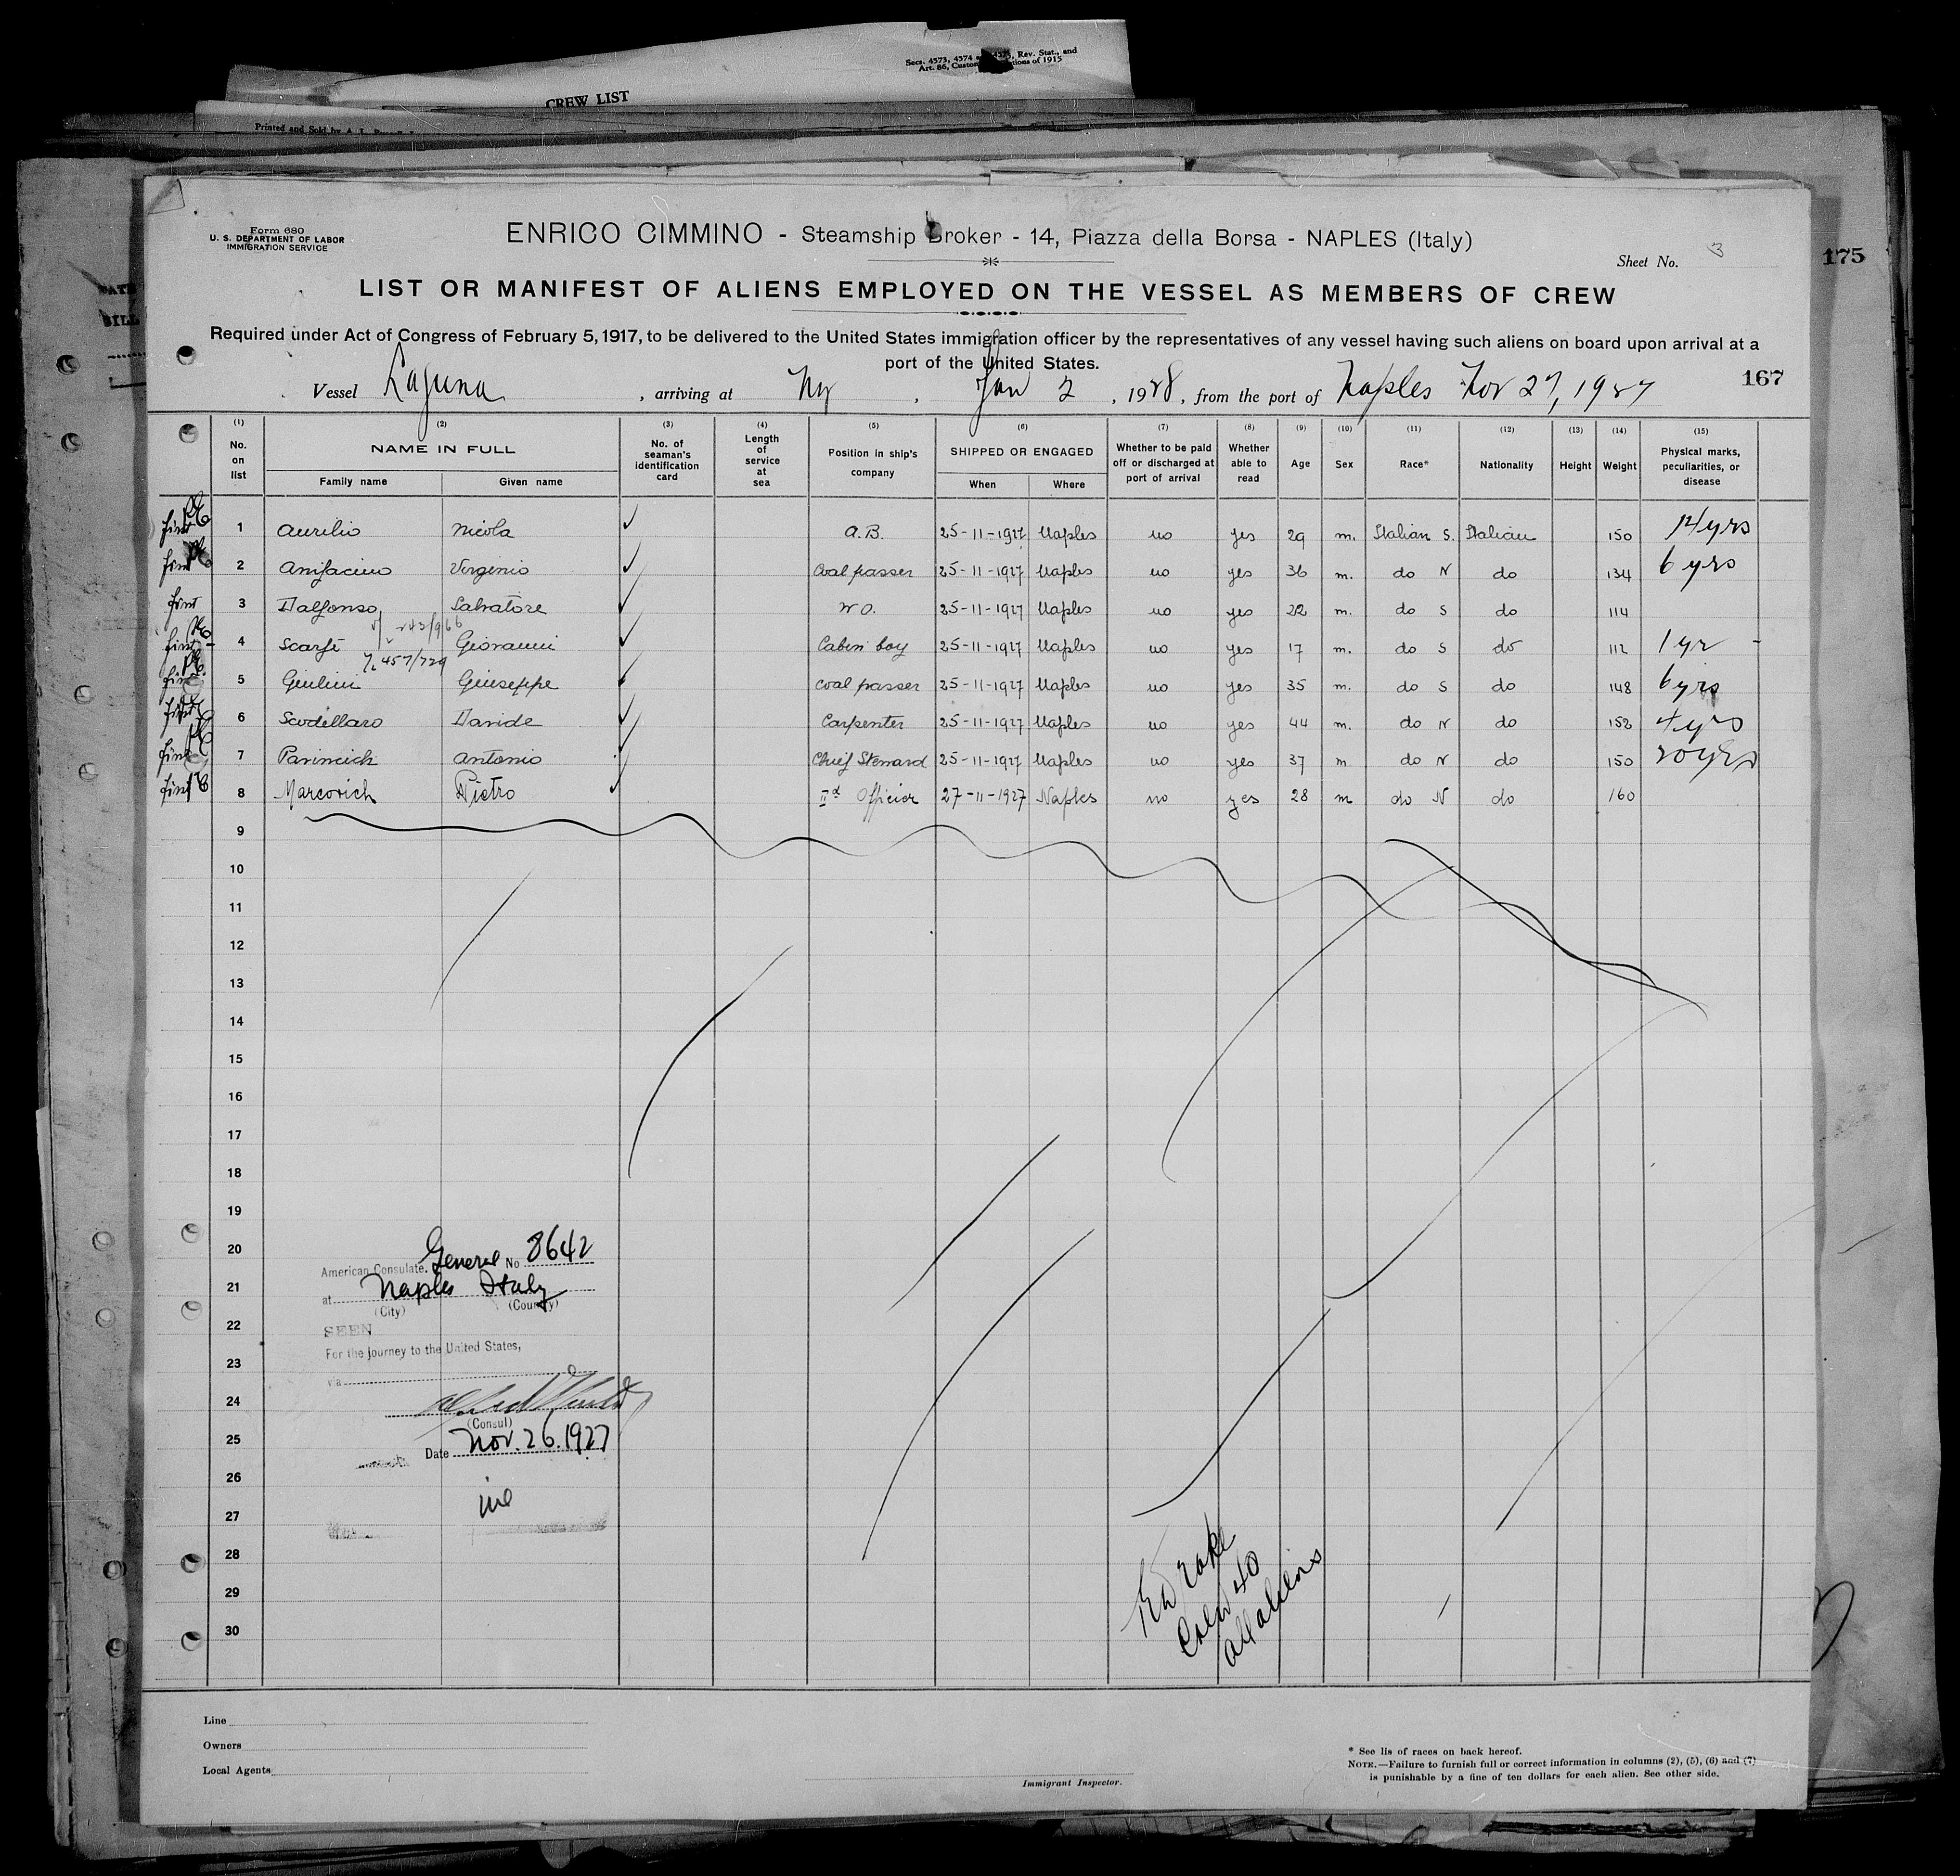 Secs. 4573, 4574 Rev. Stat., and
Art. 86, of 1915
CREW LIST
Printed and Sold by
Form 680
U. S. DEPARTMENT OF LABOR
IMMIGRATION SERVICE
ENRICO CIMMINO - Steamship Broker - 14, Piazza della Borsa - NAPLES (Italy)
Sheet No. 3
175
LIST OR MANIFEST OF ALIENS EMPLOYED ON THE VESSEL AS MEMBERS OF CREW
Required under Act of Congress of February 5, 1917, to be delivered to the United States immigration officer by the representatives of any vessel having such aliens on board upon arrival at a
port of the United States.
167
Vessel Laguna, arriving at Ny, Jan 2, 1928, from the port of Naples Nov 27, 1927
(1) (2) (3) (4) (5) (6) (7) (8) (9) (10) (11) (12) (13) (14) (15)
No. on list NAME IN FULL Family name Given name No. of seaman's identification card Length of service at sea Position in ship's company SHIPPED OR ENGAGED When Where Whether to be paid off or discharged at port of arrival Whether able to read Age Sex Race* Nationality Height Weight Physical marks, peculiarities, or disease
1 Aurilio Nicola A.B. 25-11-1927 Naples no yes 29 m. Italian S. Italian 150 14 yrs
2 Anifacino Virginio Coal passer 25-11-1927 Naples no yes 36 m. do N do 134 6 yrs
3 Dalfonso Salvatore W O. 25-11-1927 Naples no yes 22 m. do S do 114
4 Scarfi Giovanni Cabin boy 25-11-1927 Naples no yes 17 m. do S do 112 1 yr -
457/729
5 Giulini Giuseppe coal passer 25-11-1927 Naples no yes 35 m. do S do 148 6 yrs
6 Scodellaro Davide Carpenter 25-11-1927 Naples no yes 44 m. do N do 152 4 yrs
7 Parimich Antonio Chief Steward 25-11-1927 Naples no yes 37 m do N do 150 20 yrs
8 Marcovich Pietro IId Officier 27-11-1927 Naples no yes 28 m do N do 160
9
10
11
12
13
14
15
16
17
18
19
20
21
22
23
24
25
26
27
28
29
30
American Consulate. General No 8642
at Naples Italy
(City) (County)
SEEN
For the journey to the United States,
via
(Consul)
Date Nov. 26. 1927
Crew 40
all aliens
Line
Owners
Local Agents
Immigrant Inspector.
* See lis of races on back hereof.
NOTE.—Failure to furnish full or correct information in columns (2), (5), (6) and (7)
is punishable by a fine of ten dollars for each alien. See other side.